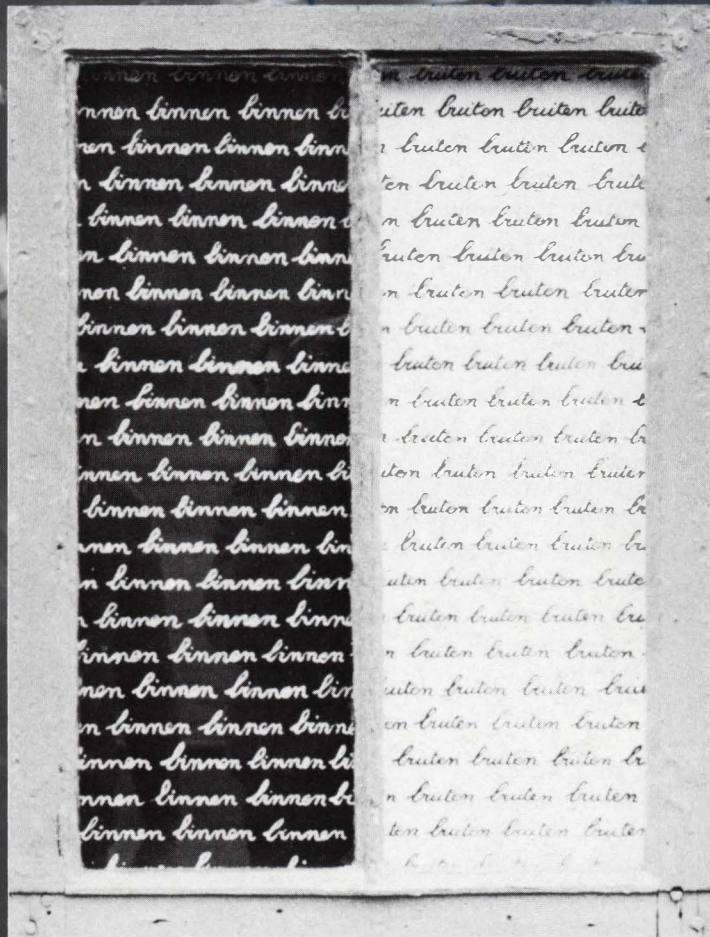 innen binnen binnen
nnen binnen binnen bi
nen binnen binnen binn
n binnen binnen binne
binnen binnen binnen
n binnen binnen binn
nen binnen binnen binn
binnen binnen binnen b
n binnen binnen binne
nen binnen binnen binn
n binnen binnen binnen
innen binnen binnen bi
binnen binnen binnen
nnen binnen binnen bin
n binnen binnen binn
n binnen binnen binne
binnen binnen binnen
nen binnen binnen bin
n binnen binnen binne
innen binnen binnen bi
nnen binnen binnen bi
binnen binnen binnen
n buiten buiten buite
uiten buiten buiten buite
n buiten buiten buiten
ten buiten buiten buite
n buiten buiten buiten
buiten buiten buiten bu
n buiten buiten buiten
buiten buiten buiten
buiten buiten buiten bui
n buiten buiten buiten b
n buiten buiten buiten b
uiten buiten buiten buiten
en buiten buiten buiten b
buiten buiten buiten bu
uiten buiten buiten buite
buiten buiten buiten bu
n buiten buiten buiten
uiten buiten buiten buit
en buiten buiten buiten
buiten buiten buiten b
n buiten buiten buiten
ten buiten buiten buiten